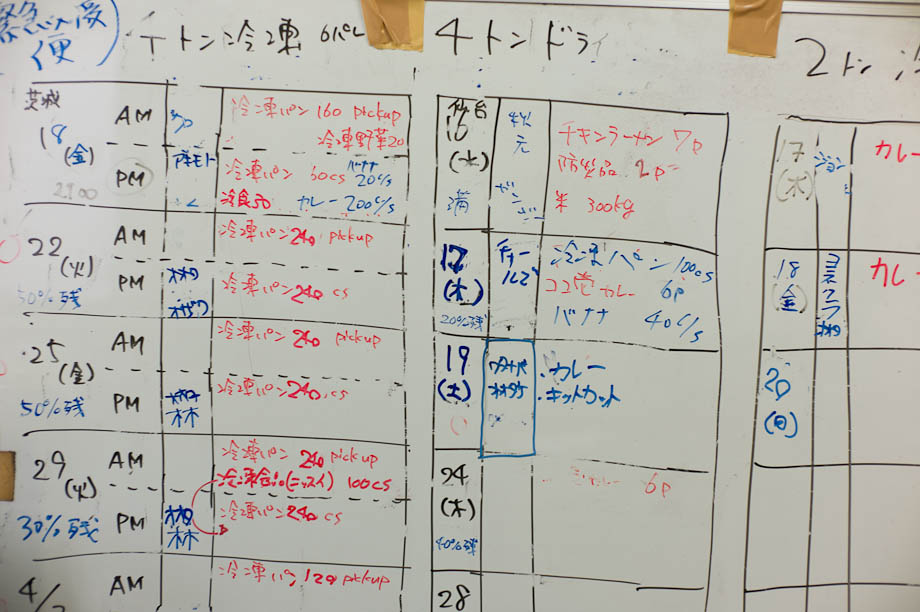 緊急
便
トン冷凍 6パレ
茨城
18
(金)
AM
冷凍パン 160 pickup
冷凍野菜20
PM
冷凍パン 60cs バナナ
20c/s
冷食50 カレー 200c/s
22
(火)
50%残
AM
冷凍パン 240 pickup
PM
冷凍パン 240 cs
25
(金)
50%残
AM
冷凍パン 240 pickup
PM
林
冷凍パン 240 cs
29
(火)
30%残
AM
冷凍パン 240 pickup
冷凍食品(ニッスイ) 100cs
PM
林
冷凍パン 240 cs
4/
AM
冷凍パン 120 pickup
4トンドライ
仙台
16
(水)
満
チキンラーメン 7p
防災品 2p
米 300kg
17
(木)
20%残
冷凍パン 100cs
ココ壱カレー 6p
バナナ 40c/s
19
(土)
・カレー
・キットカット
24
(木)
40%残
カレー 6p
28
2トン
17
(木)
ジョン
カレー
18
(金)
カレ
20
(日)